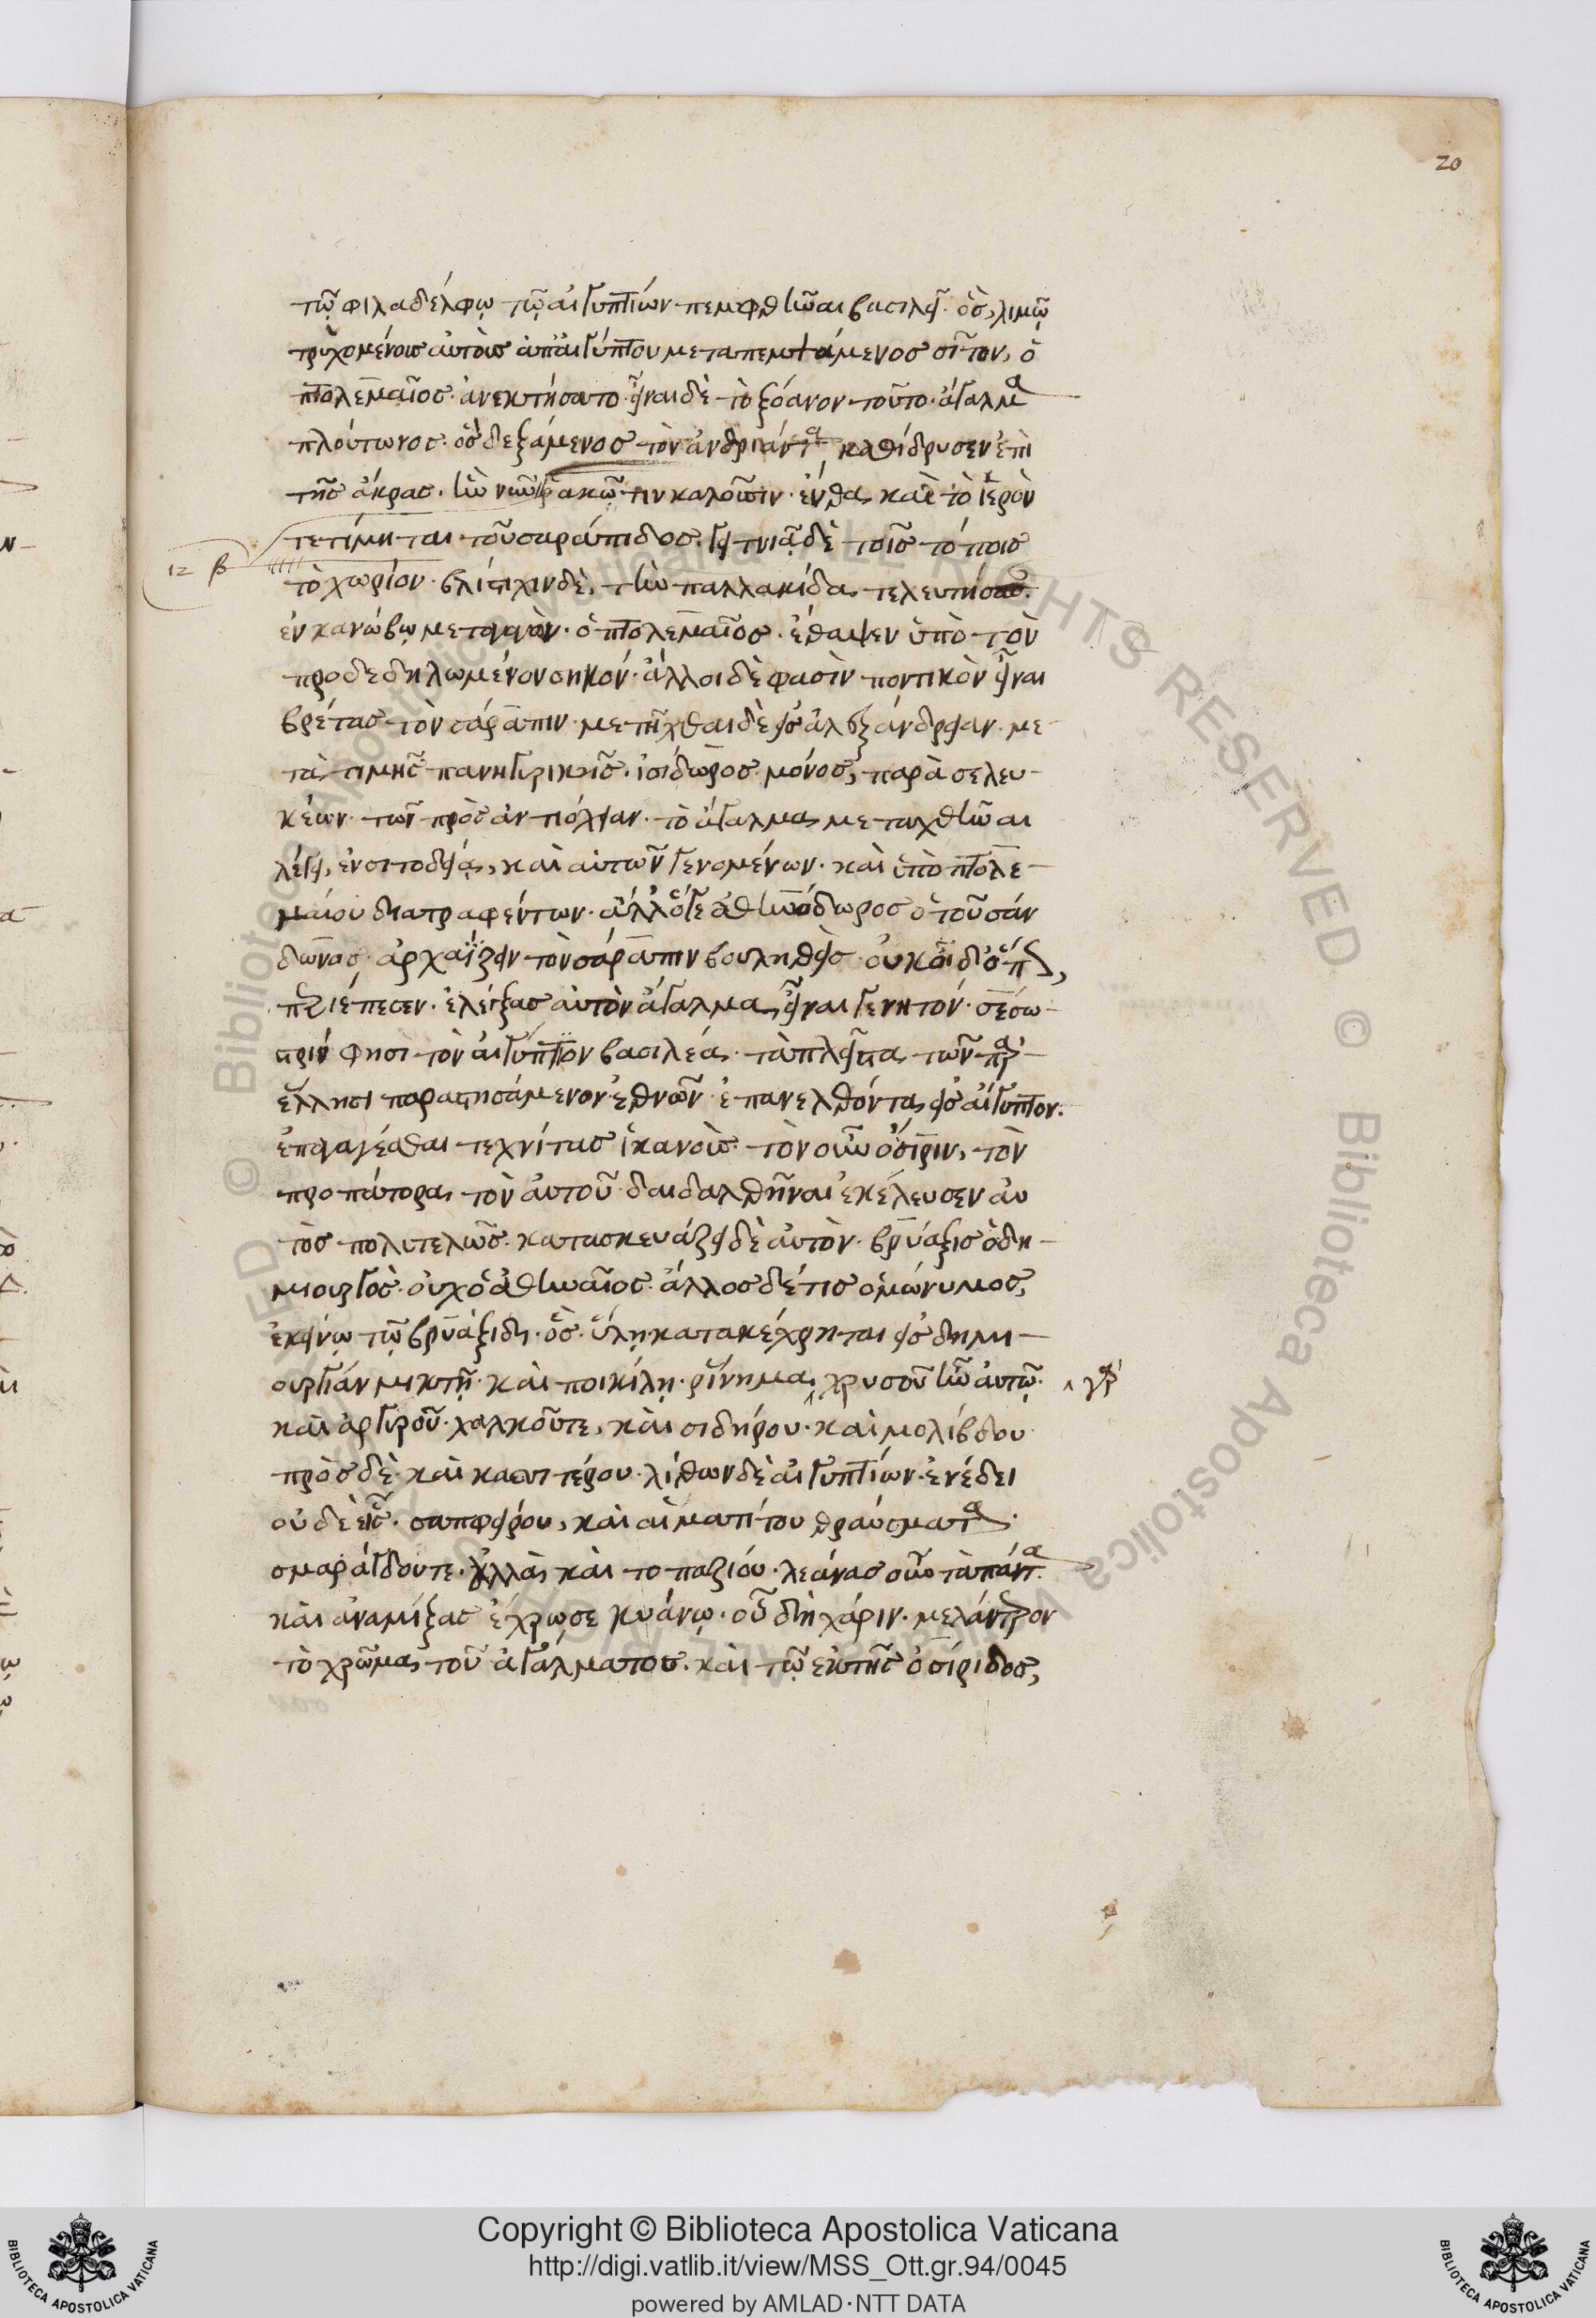 20
τῷ φιλαδέλφῳ τῷ αἰγυπτίων πεμφθῆναι βασιλεῖ· ὃς, λιμῷ
τρυχομένους αὐτοὺς ἀπ' αἰγύπτου μεταπεμψάμενος σῖτον, ὁ
πτολεμαῖος· ἀνεκτήσατο· εἶναι δὲ τὸ ξόανον τοῦτο· ἄγαλμα
πλούτωνος· ὃς δεξάμενος τὸν ἀνδριάντα καθίδρυσεν ἐπὶ
τῆς ἄκρας· ἣν νῦν ῥακῶτιν καλοῦσιν· ἔνθα καὶ τὸ ἱερὸν
τετίμηται τοῦ σαράπιδος. γειτνιᾷ δὲ τοῖς τόποις
12 β
τὸ χωρίον· βλίστιχιν δὲ, τὴν παλλακίδα τελευτήσασ
ἐν κανώβῳ μεταγαγὼν· ὁ πτολεμαῖος· ἔθαψεν ὑπὸ τὸν
προδεδηλωμένον σηκόν· ἄλλοι δὲ φασὶν ποντικὸν εἶναι
βρέτας τὸν σάραπιν· μετῆχθαι δὲ εἰς ἀλεξάνδρειαν· με-
τὰ τιμῆς πανηγυρικῆς. ἰσίδωρος μόνος, παρὰ σελευ-
κέων· τῶν πρὸς ἀντιόχειαν· τὸ ἄγαλμα μεταχθῆναι
λέγει, ἐν σιτοδείᾳ, καὶ αὐτῶν γενομένων· καὶ ὑπὸ πτολε-
μαίου διατραφέντων· ἀλλ' ὅ γε ἀθηνόδωρος ὁ τοῦ σάν
δωνος· ἀρχαΐζειν τὸν σάραπιν βουληθεὶς· οὐκ οἶδ' ὅπως,
περιέπεσεν· ἐλέγξας αὐτὸν ἄγαλμα εἶναι γενητόν· σέσω-
στριν φησὶ τὸν αἰγύπτιον βασιλέα· τὰ πλεῖστα τῶν παρ'
ἕλλησι παραστησάμενον ἐθνῶν· ἐπανελθόντα εἰς αἴγυπτον·
ἐπαγαγέσθαι τεχνίτας ἱκανούς· τὸν οὖν ὄσιριν, τὸν
προπάτορα τὸν αὐτοῦ δαιδαλθῆναι ἐκέλευσεν αὐ
τὸς πολυτελῶς. κατασκευάζει δὲ αὐτὸν· βρύαξις ὁ δη-
μιουργὸς· οὐχ ὁ ἀθηναῖος· ἄλλος δέ τις ὁμώνυμος,
ἐκείνῳ τῷ βρυάξιδι· ὃς ὕλῃ κατακέχρηται εἰς δημι-
ουργίαν μικτῇ καὶ ποικίλῃ· ῥίνημα χρυσοῦ ἦν αὐτῷ· γὰρ
καὶ ἀργύρου· χαλκοῦ τε, καὶ σιδήρου· καὶ μολίβδου
πρὸς δὲ· καὶ κασσιτέρου· λίθων δὲ αἰγυπτίων· ἐνέδει
οὐδὲ εἷς· σαπφείρου, καὶ αἱματίτου θραύσματα·
σμαράγδου τε· ἀλλὰ καὶ τοπαζίου· λεάνας οὖν τὰ πάντα
καὶ ἀναμίξας ἔχρωσε κυάνῳ· οὗ δὴ χάριν· μελάντερον
τὸ χρῶμα τοῦ ἀγάλματος. καὶ τῷ ἐκ τῆς ὀσίριδος,
© Biblioteca Apostolica Vaticana ALL RIGHTS RESERVED
Copyright © Biblioteca Apostolica Vaticana
http://digi.vatlib.it/view/MSS_Ott.gr.94/0045
powered by AMLAD·NTT DATA
BIBLIOTECA APOSTOLICA VATICANA
BIBLIOTECA APOSTOLICA VATICANA